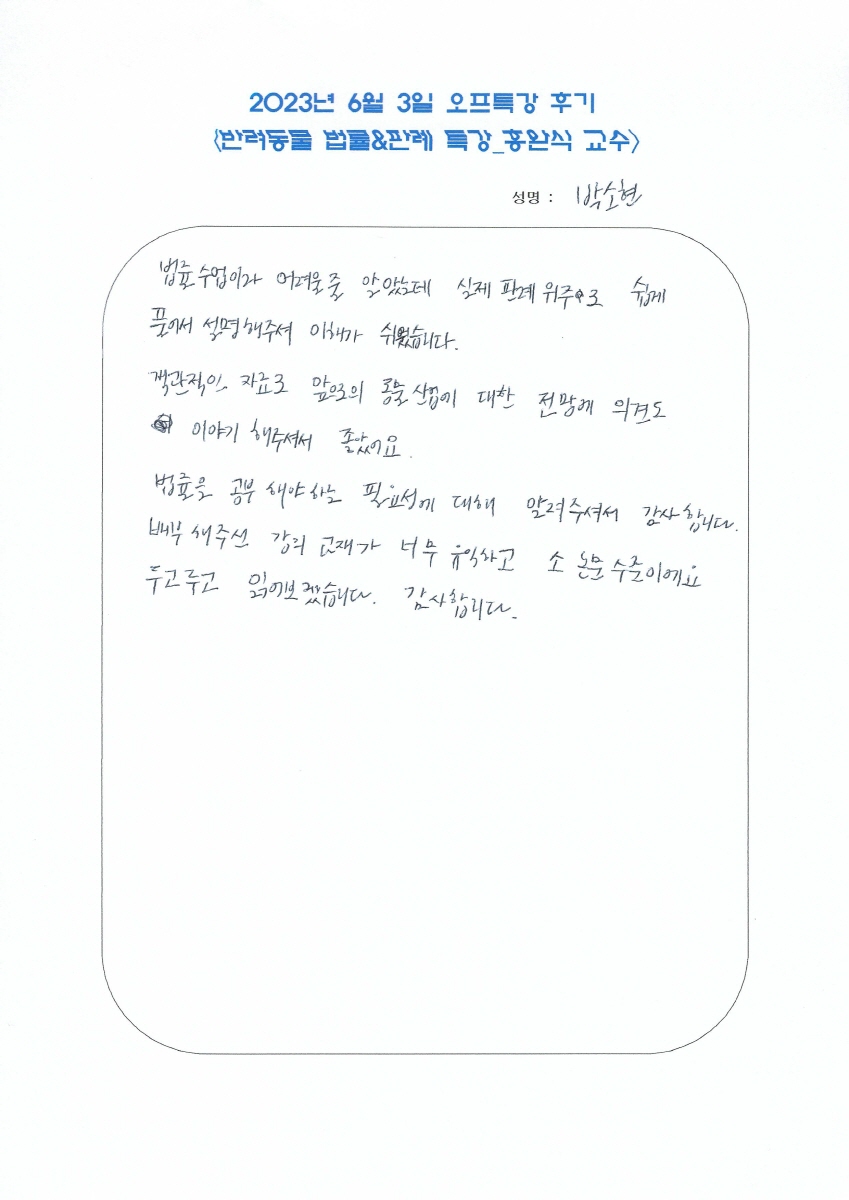 2023년 6월 3일 오프특강 후기
<반려동물 법률&판례 특강_홍완식 교수>
성명 : 박소현
법률수업이라 어려울줄 알았는데 실제 판례 위주로 쉽게
풀어서 설명해주셔 이해가 쉬웠습니다.
객관적인 자료로 앞으로의 동물산업에 대한 전망에 의견도
이야기 해주셔서 좋았어요.
법률을 공부 해야하는 필요성에 대해 알려주셔서 감사합니다.
배부 해주신 강의 교재가 너무 유익하고 소 논문 수준이에요
두고두고 읽어보겠습니다. 감사합니다.